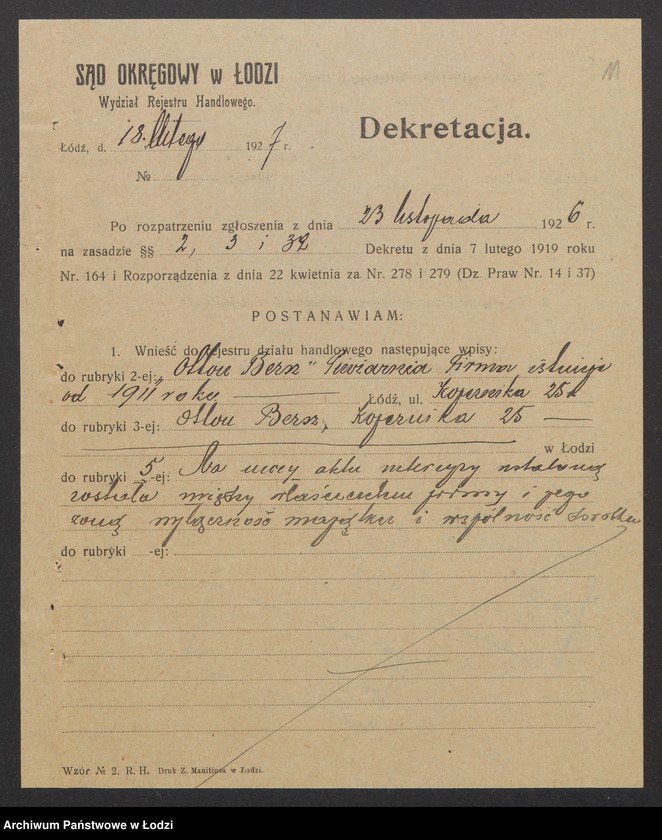 11
SĄD OKRĘGOWY w ŁODZI
Wydział Rejestru Handlowego.
Dekretacja.
Łódź, d. 18 lutego 1927 r.
№
Po rozpatrzeniu zgłoszenia z dnia 23 listopada 1926 r.
na zasadzie §§ 2, 3 i 32 Dekretu z dnia 7 lutego 1919 roku
Nr. 164 i Rozporządzenia z dnia 22 kwietnia za Nr. 278 i 279 (Dz. Praw Nr. 14 i 37)
POSTANAWIAM:
1. Wnieść do rejestru działu handlowego następujące wpisy:
do rubryki 2-ej: Firma istnieje
od 1911 roku Łódź, ul. Kopernika 25
do rubryki 3-ej: Kopernika 25
w Łodzi
do rubryki 5-ej: Na mocy aktu intercyzy ustaloną
została między właścicielem firmy i jego
żoną wyłączność majątku i wspólność dorobku
do rubryki -ej:
Wzór № 2. R. H. Druk Z. Manitiusa w Łodzi.
Archiwum Państwowe w Łodzi